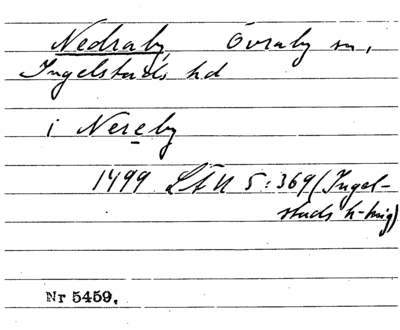 Nedraby, Övraby sn,
Ingelstads hd
i Nereby
1499 LÄU 5:369 (Ingel-
stads h-ting)
Nr 5459.